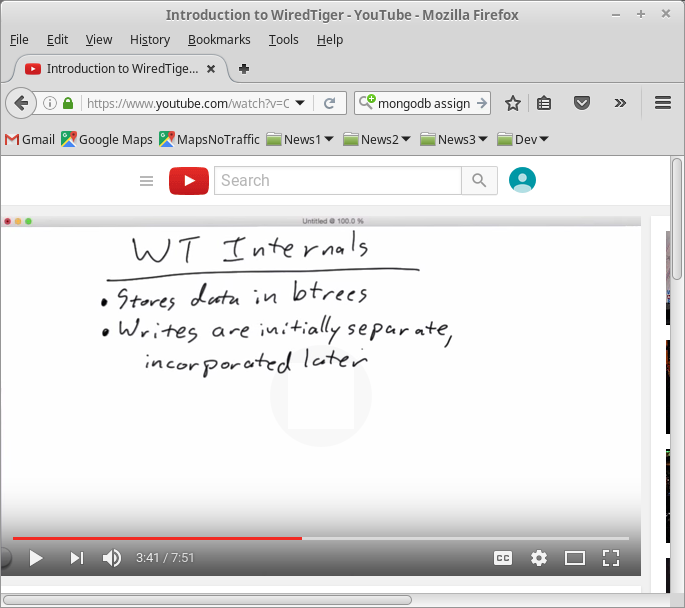 Introduction to WiredTiger - YouTube - Mozilla Firefox
File Edit View History Bookmarks Tools Help
Introduction to WiredTige...
https://www.youtube.com/watch?v=C
mongodb assign
Gmail Google Maps MapsNoTraffic News1 News2 News3 Dev
Search
Untitled @ 100.0 %
WT Internals
• Stores data in btrees
• Writes are initially separate,
incorporated later
3:41 / 7:51
CC